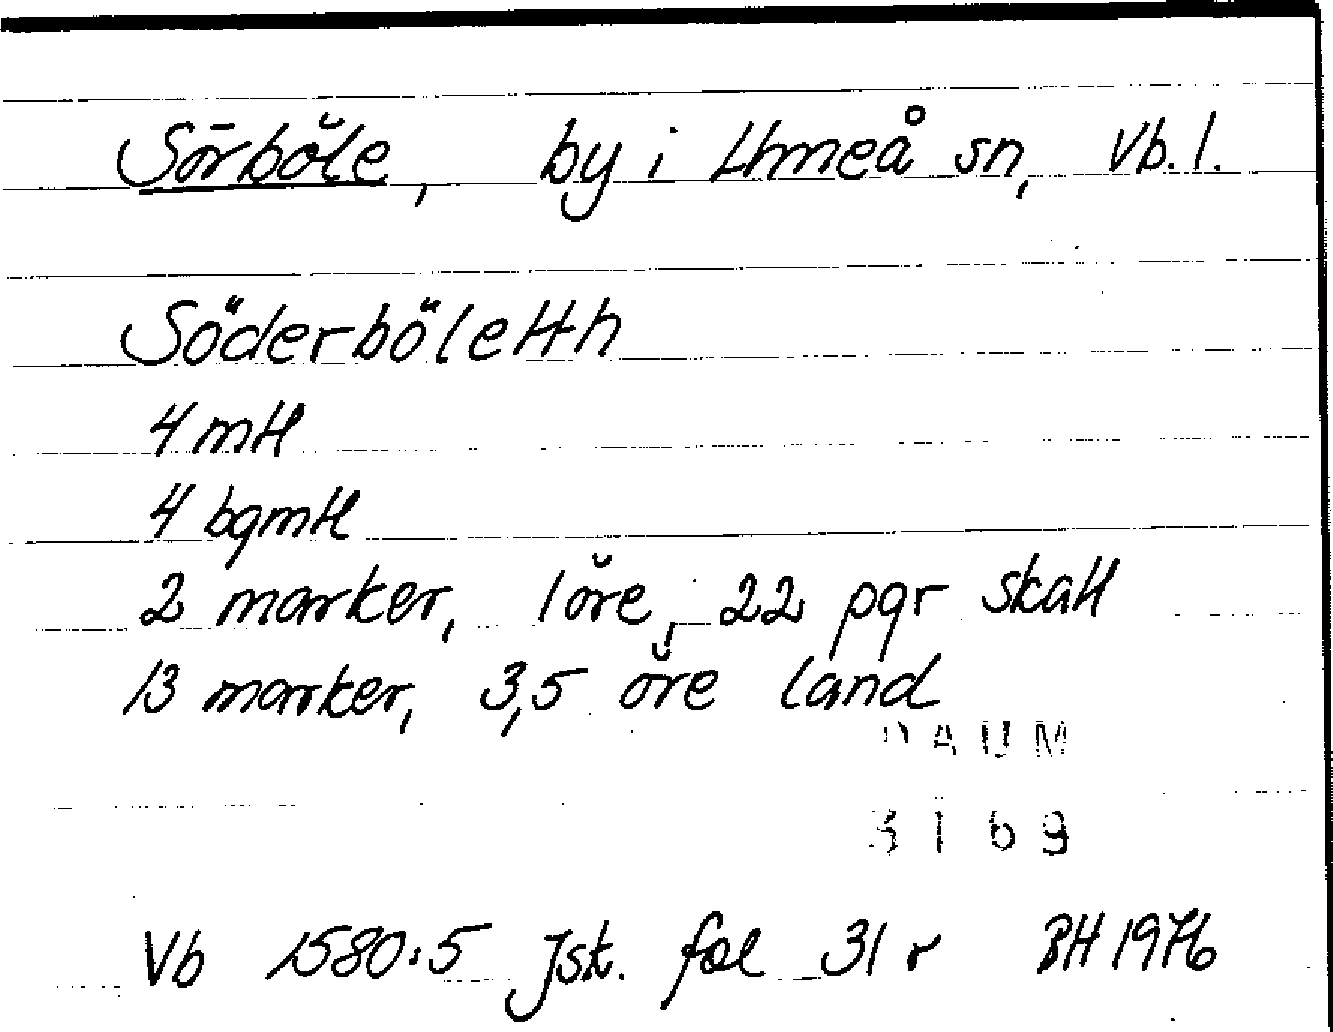 Sörböle, by i Umeå sn, Vb. l.
Söderböletth
4 mtl
4 bgmtl
2 marker, 1 öre, 22 pgr skatt
13 marker, 3,5 öre land
DAUM
3169
Vb 1580:5 Jsk. fol 31 r BH 1976